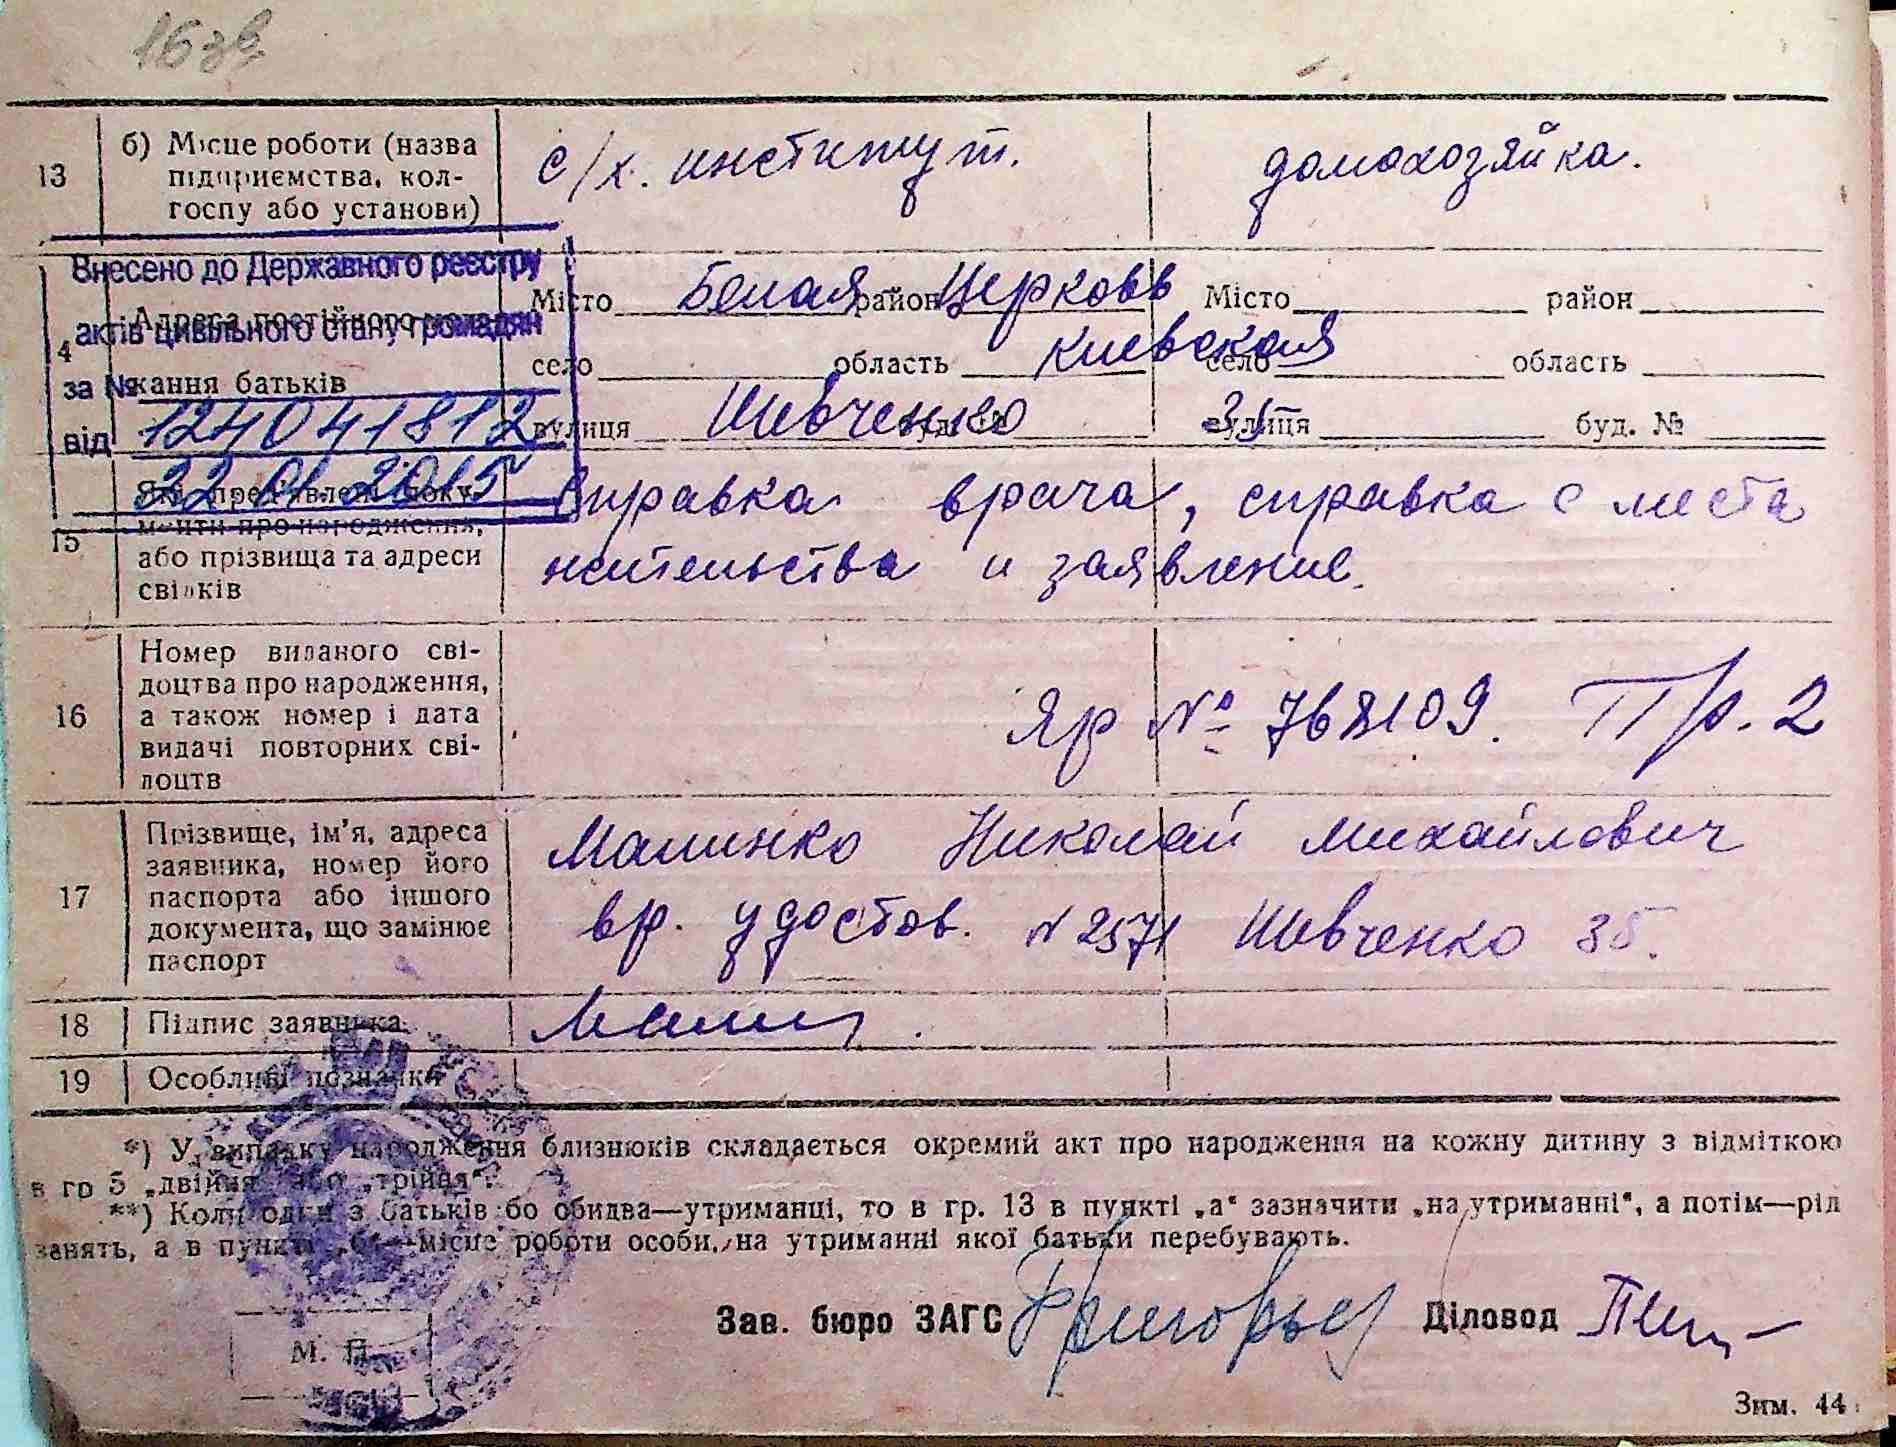 16 зв
13 б) Місце роботи (назва підприємства, колгоспу або установи) с/х. институт. домохозяйка.
Внесено до Державного реєстру
актів цивільного стану громадян
за №
124041812
від
22.01.2015
Адреса постійного
кання батьків
Місто Белая район Церковь Місто район
село область Киевская село область
вулиця Шевченко 35 вулиця буд. №
15
або прізвища та адреси
свідків
Справка врача, справка с места
жительства и заявление.
16 Номер виданого сві-
доцтва про народження,
а також номер і дата
видачі повторних сві-
доцтв
Яр № 768109. Пр. 2
17 Прізвище, ім'я, адреса
заявника, номер його
паспорта або іншого
документа, що замінює
паспорт
Малинко Николай Михайлович
вр. удостов. № 2571 Шевченко 35.
18 Підпис заявника
19 Особливі позначки
*) У випадку народження близнюків складається окремий акт про народження на кожну дитину з відміткою
в гр 5 „двійня" або „трійня".
**) Коли один з батьків бо обидва—утриманці, то в гр. 13 в пункті „а" зазначити „на утриманні", а потім—рід
занять, а в пункті „б"—місце роботи особи, на утриманні якої батьки перебувають.
Зав. бюро ЗАГС Діловод
М. П.
Зим. 44